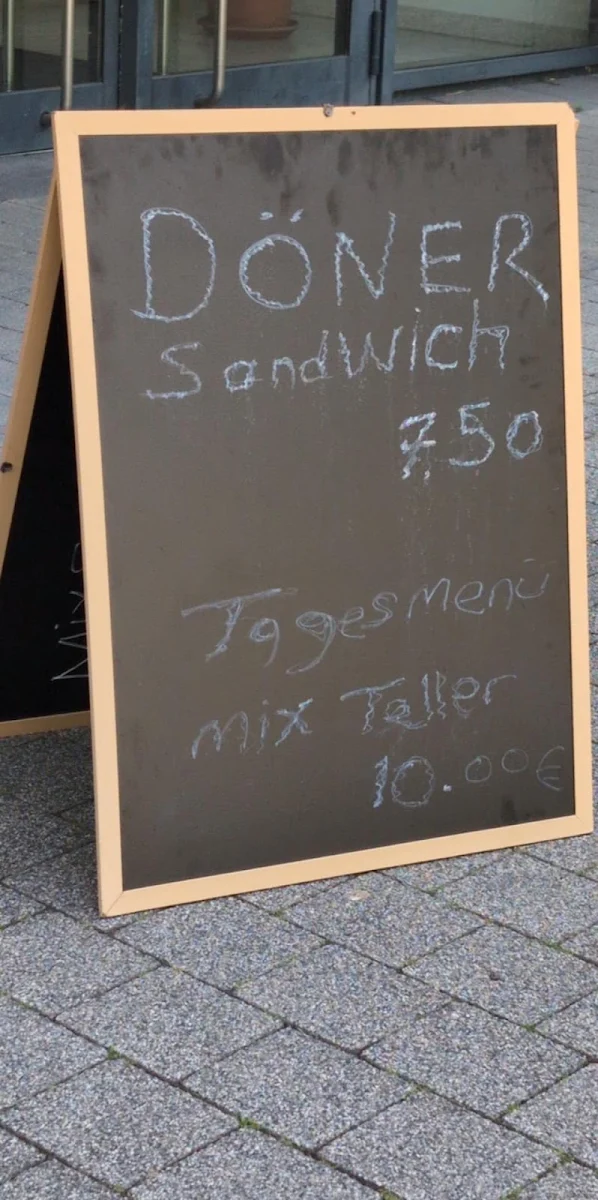 DÖNER
Sandwich
750
Tagesmenü
mix Teller
10.00€
Mix